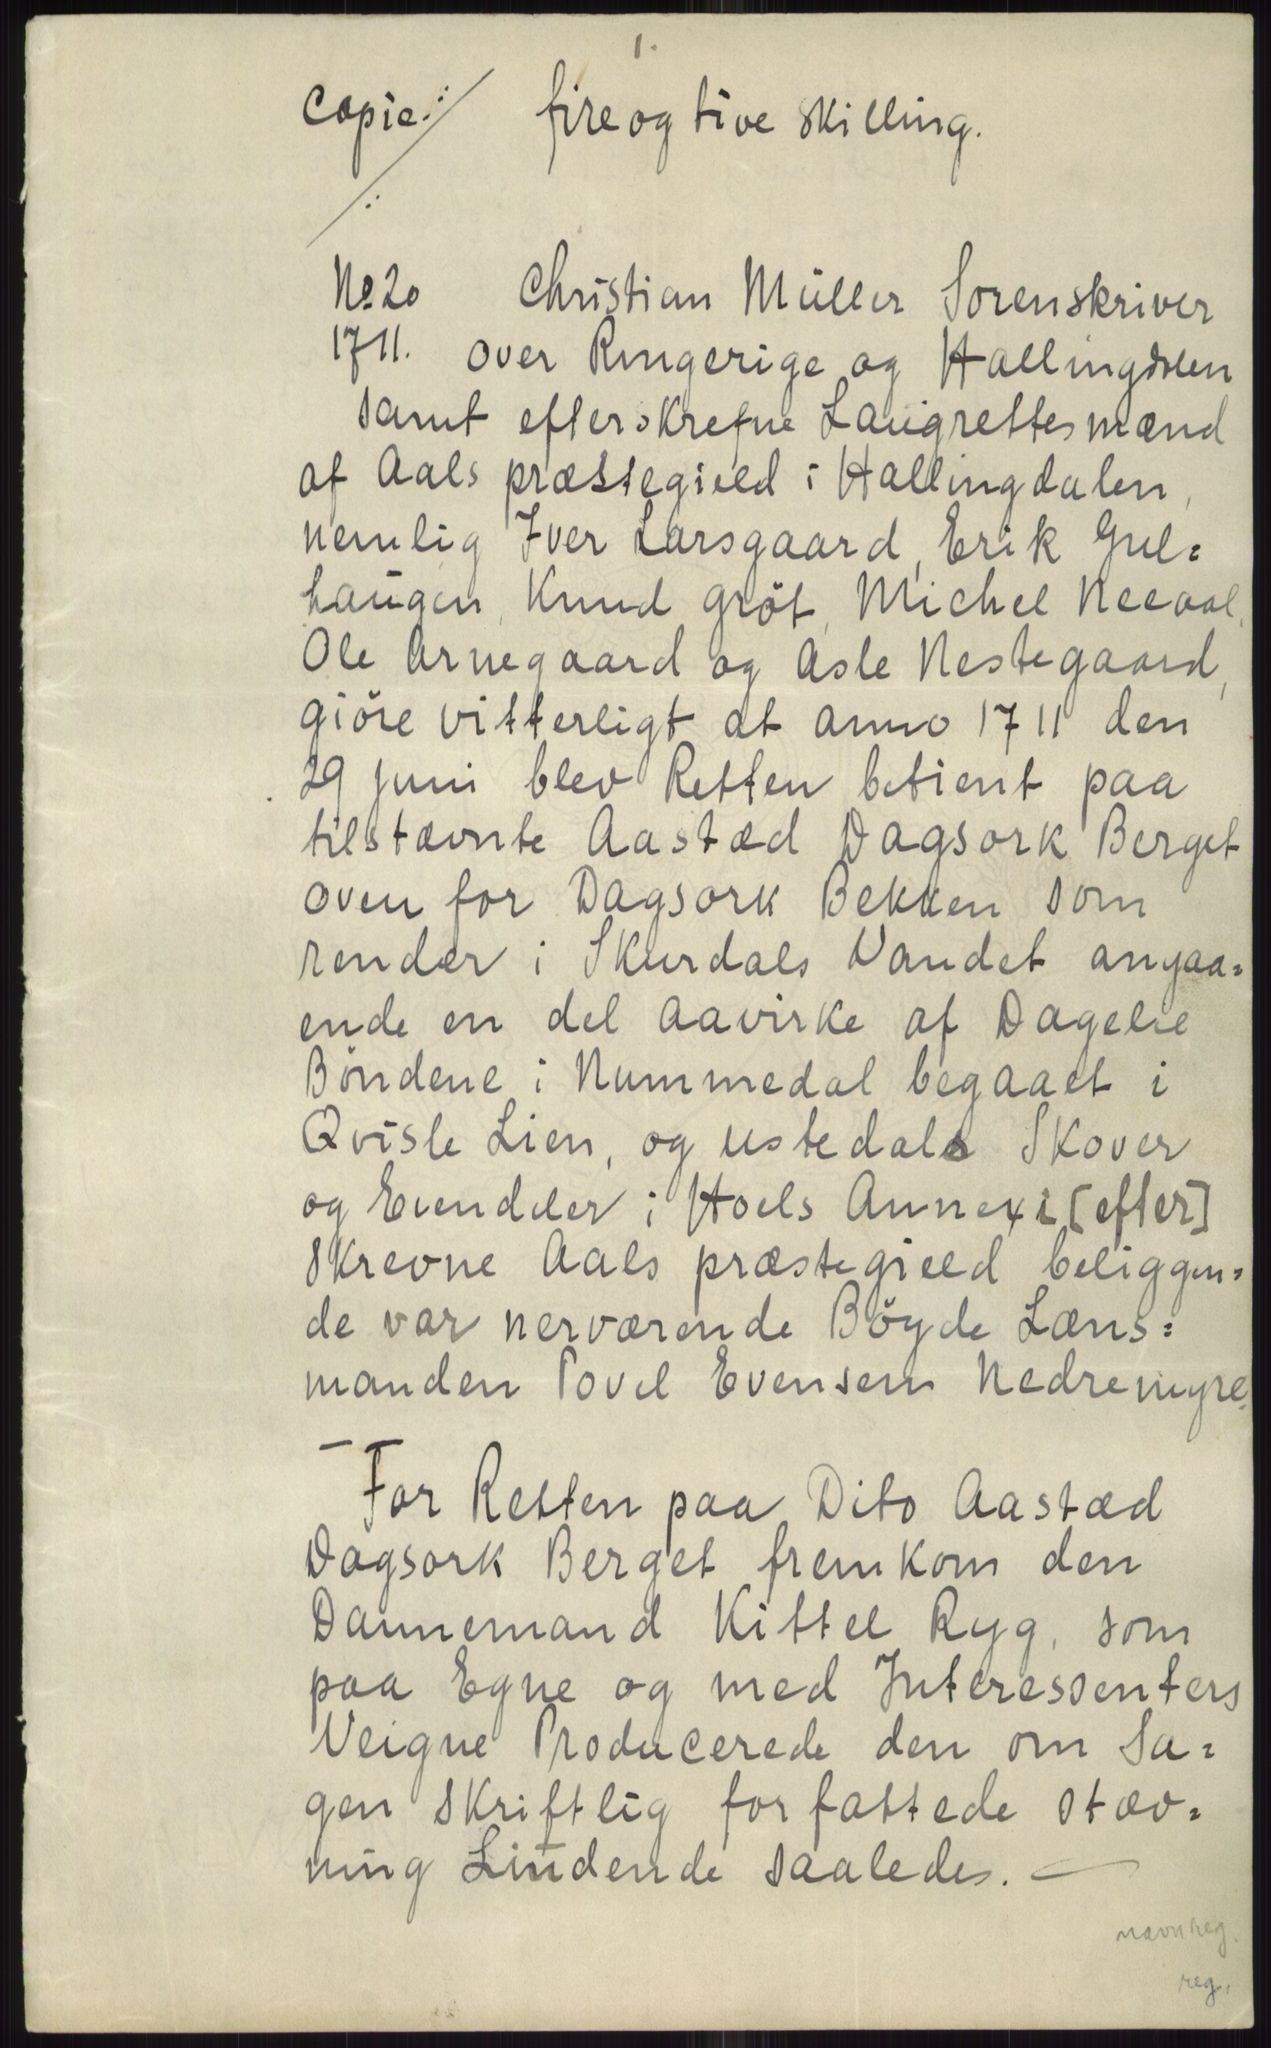 1.
Copie:/: fire og tive skilling.
/:
No 20 Christian Müller Sorenskriver
1711. over Ringerige og Hallingdalen
samt efterskrefne Laugrettesmænd
af Aals præstegield i Hallingdalen,
nemlig Iver Larsgaard, Erik Gul=
haugen, Knud gröt, Michel Neeaal,
Ole Arnegaard og Asle Nestegaard,
giöre vitterligt at anno 1711 den
29 juni blev Retten betient paa
tilstævnte Aastæd Dagsork Berget
oven for Dagsork Bekken som
render i Skurdals Vandet angaa=
ende en del Aavirke af Dagelie
Böndene i Nummedal begaaet i
Qvisle Lien, og ustedals Skover
og Eiendeler i Hoels Annexi [efter]
skrevne Aals præstegield beliggen=
de var nerværende Böyde Læns=
manden Povel Evensen Nedremyre.
– For Retten paa Dito Aastæd
Dagsork Berget fremkom den
Dannemand Kittel Ryg, som
paa Egne og med Interessenters
Veigne Producerede den om Sa=
gen skriftlig forfattede stæv=
ning Liudende saaledes. —
navnreg.
reg.